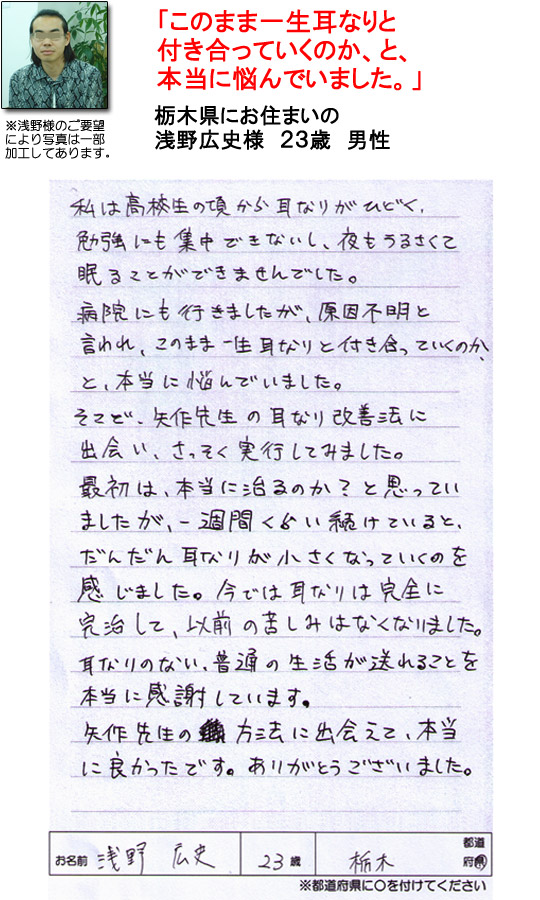 「このまま一生耳なりと
付き合っていくのか、と、
本当に悩んでいました。」
※浅野様のご要望
により写真は一部
加工してあります。
栃木県にお住まいの
浅野広史様 23歳 男性
私は高校生の頃から耳なりがひどく、
勉強にも集中できないし、夜もうるさくて
眠ることができませんでした。
病院にも行きましたが、原因不明と
言われ、このまま一生耳なりと付き合っていくのか、
と、本当に悩んでいました。
そこで、矢作先生の耳なり改善法に
出会い、さっそく実行してみました。
最初は、本当に治るのか?と思ってい
ましたが、一週間くらい続けていると、
だんだん耳なりが小さくなっていくのを
感じました。今では耳なりは完全に
完治して、以前の苦しみはなくなりました。
耳なりのない、普通の生活が送れることを
本当に感謝しています。
矢作先生の方法に出会えて、本当
に良かったです。ありがとうございました。
お名前 浅野 広史 23歳 栃木 都道府県
※都道府県に○を付けてください